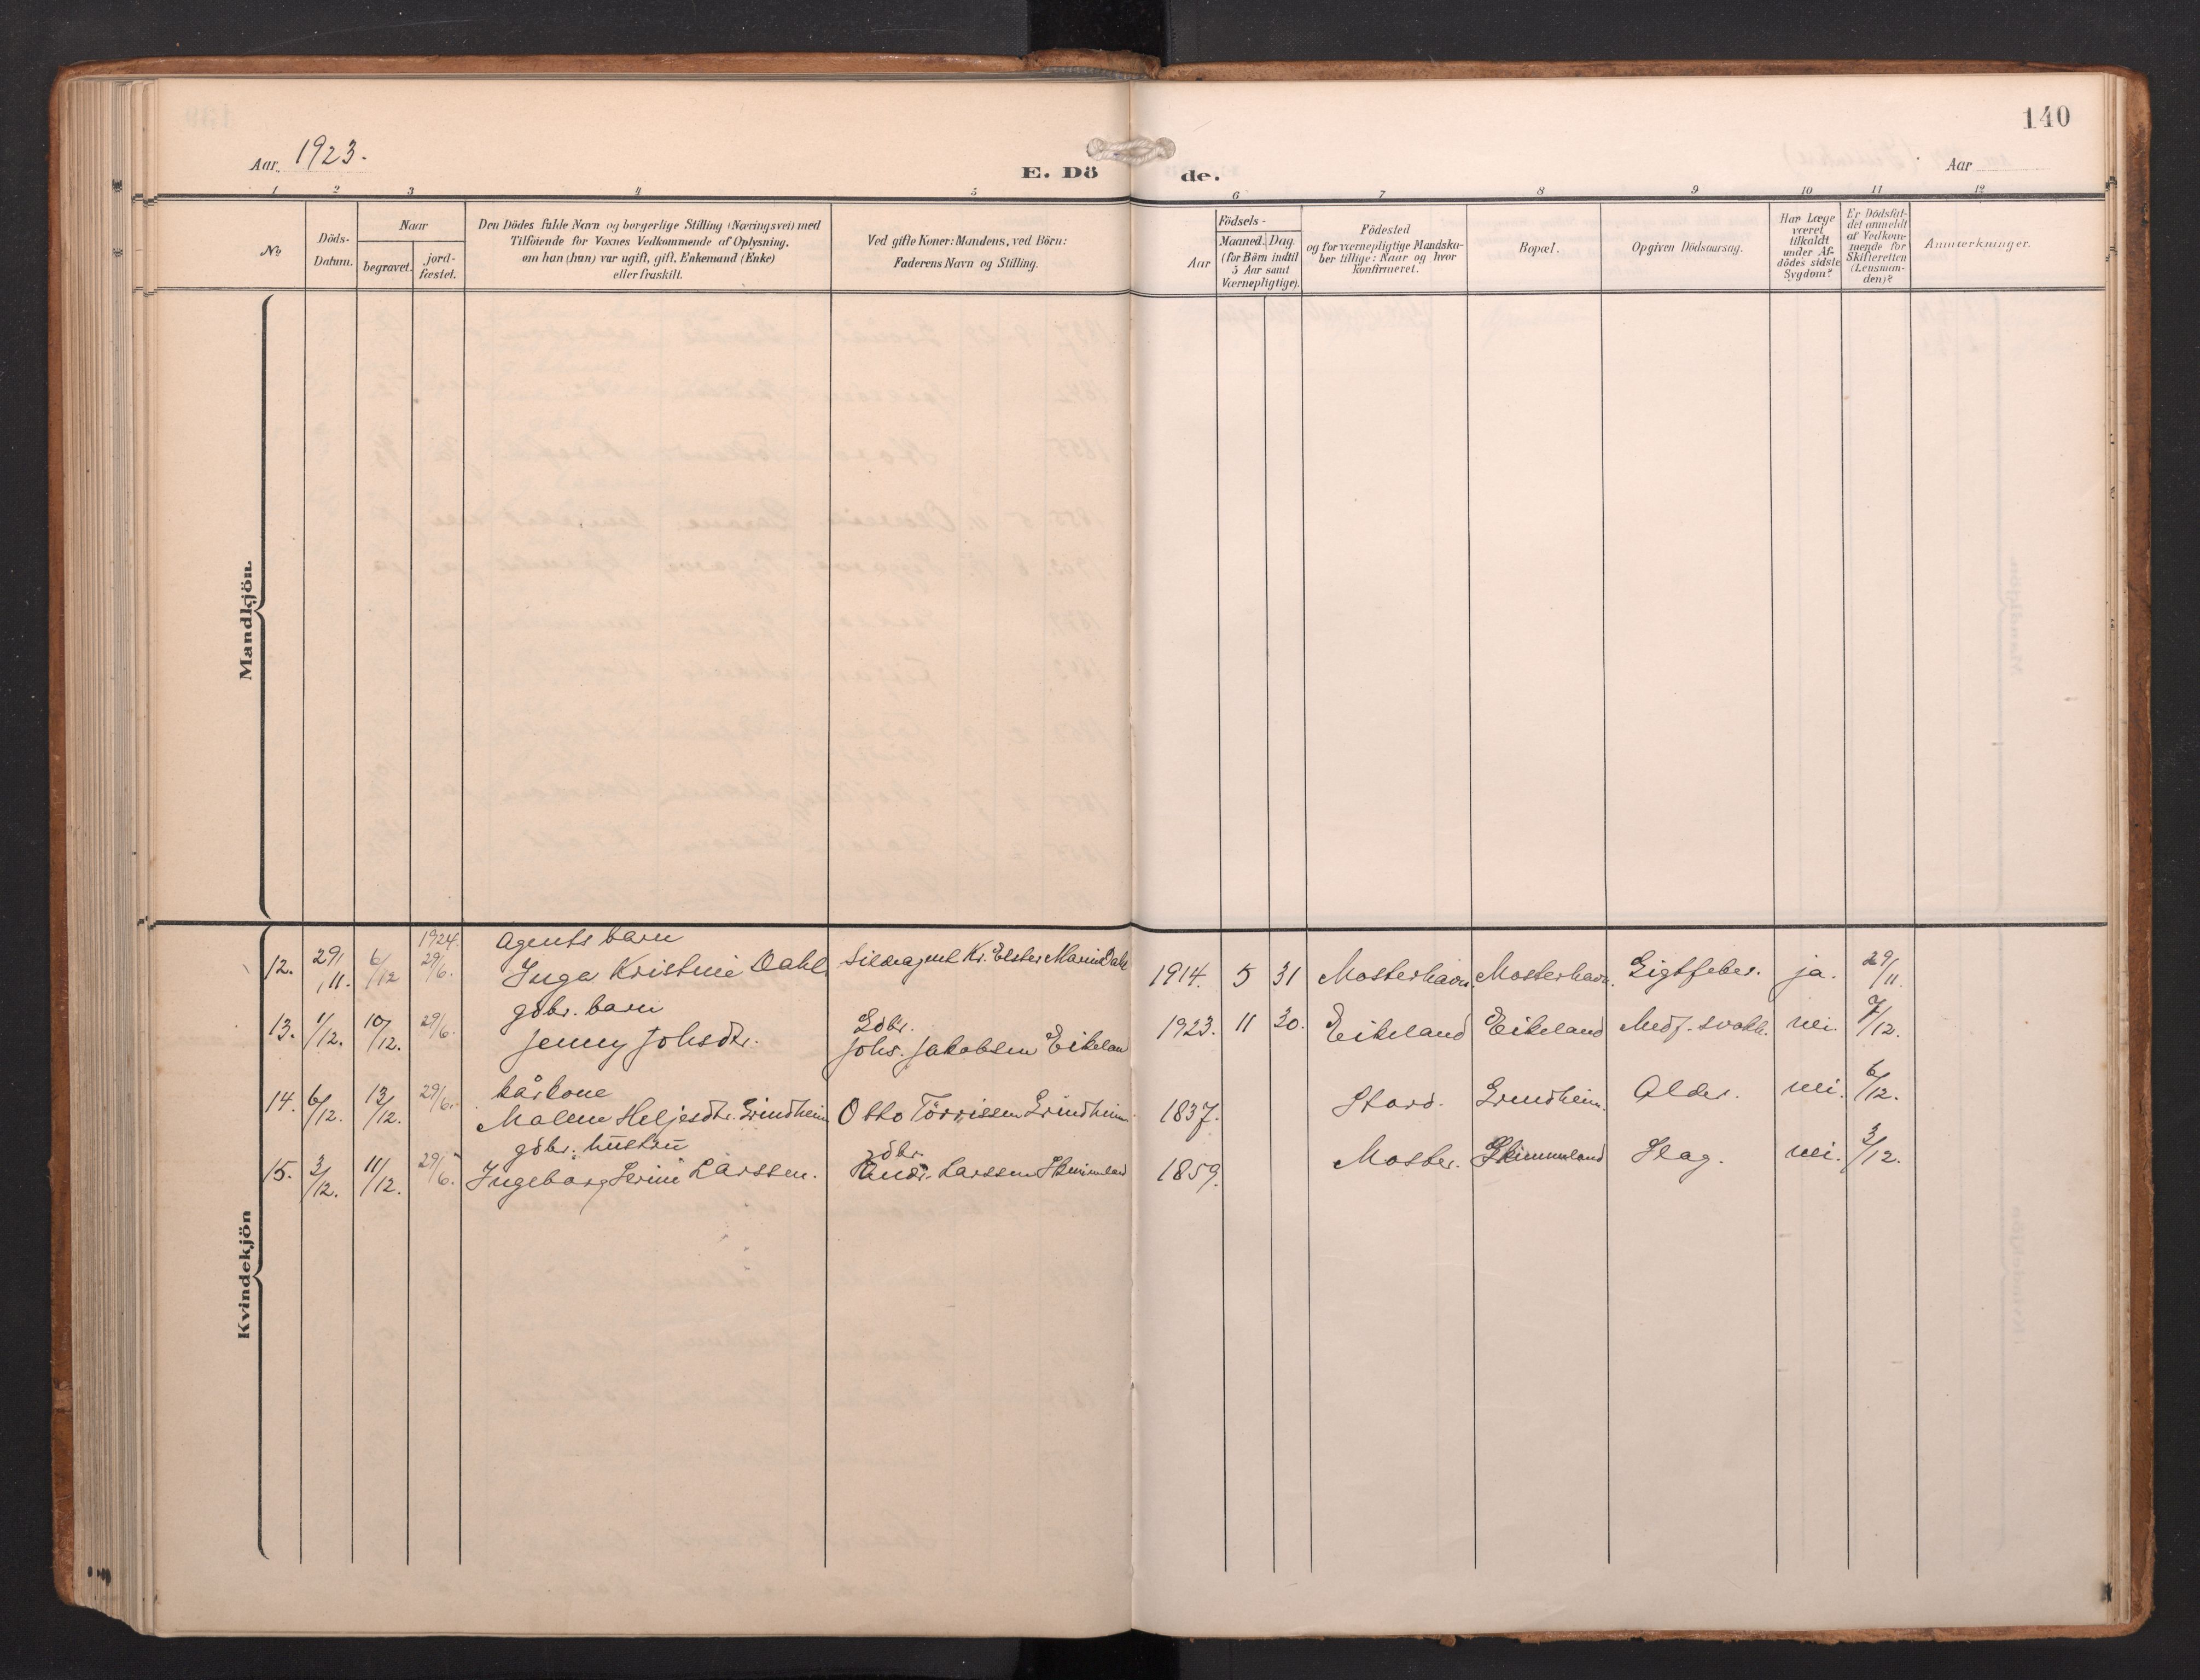 140
Aar 1923.
E. Dö de.
Aar
1 2 3 4 5 6 7 8 9 10 11 12
No
Döds-
Datum.
Naar
begravet.
jord-
fæstet.
Den Dödes fulde Navn og borgerlige Stilling (Næringsvei) med
Tilföiende for Voxnes Vedkommende af Oplysning,
om han (hun) var ugift, gift, Enkemand (Enke)
eller fraskilt.
Ved gifte Koner: Mandens, ved Börn:
Faderens Navn og Stilling.
Födsels-
Aar
Maaned. Dag.
(for Börn indtil
5 Aar samt
Værnepligtige).
Födested
og for værnepligtige Mandska-
ber tillige: Naar og hvor
konfirmeret.
Bopæl.
Opgiven Dödsaarsag.
Har Læge
været
tilkaldt
under Af-
dödes sidste
Sygdom?
Er Dödsfal-
det anmeldt
af Vedkom-
mende for
Skifteretten
(Lensman-
den)?
Anmærkninger.
Mandkjön.
Kvindekjön
1924. agents barn
12. 29/11. 6/12 29/6. Inga Kristine Dahl Sildeagent Kr. Elster Marin Dahl 1914. 5 31 Mosterhavn. Mosterhavn. Gigtfeber. ja. 29/11.
gdbr. barn Gdbr.
13. 1/12. 10/12. 29/6. Jenny Johsdtr. Johs. Jakobsen Eikeland 1923. 11 30. Eikeland Eikeland Medf. svakh. nei. 7/12.
kårkone
14. 6/12. 13/12. 29/6. Malene Heljesdtr. Grindheim Otto Törrissen Grindheim 1837. Stord. Grindheim. Alder. nei. 6/12.
gdbr. hustru gdbr.
15. 3/12. 11/12. 29/6. Ingeborg Serine Larssen. Larssen Skimmeland 1859. Moster. Skimmeland Slag. nei. 3/12.